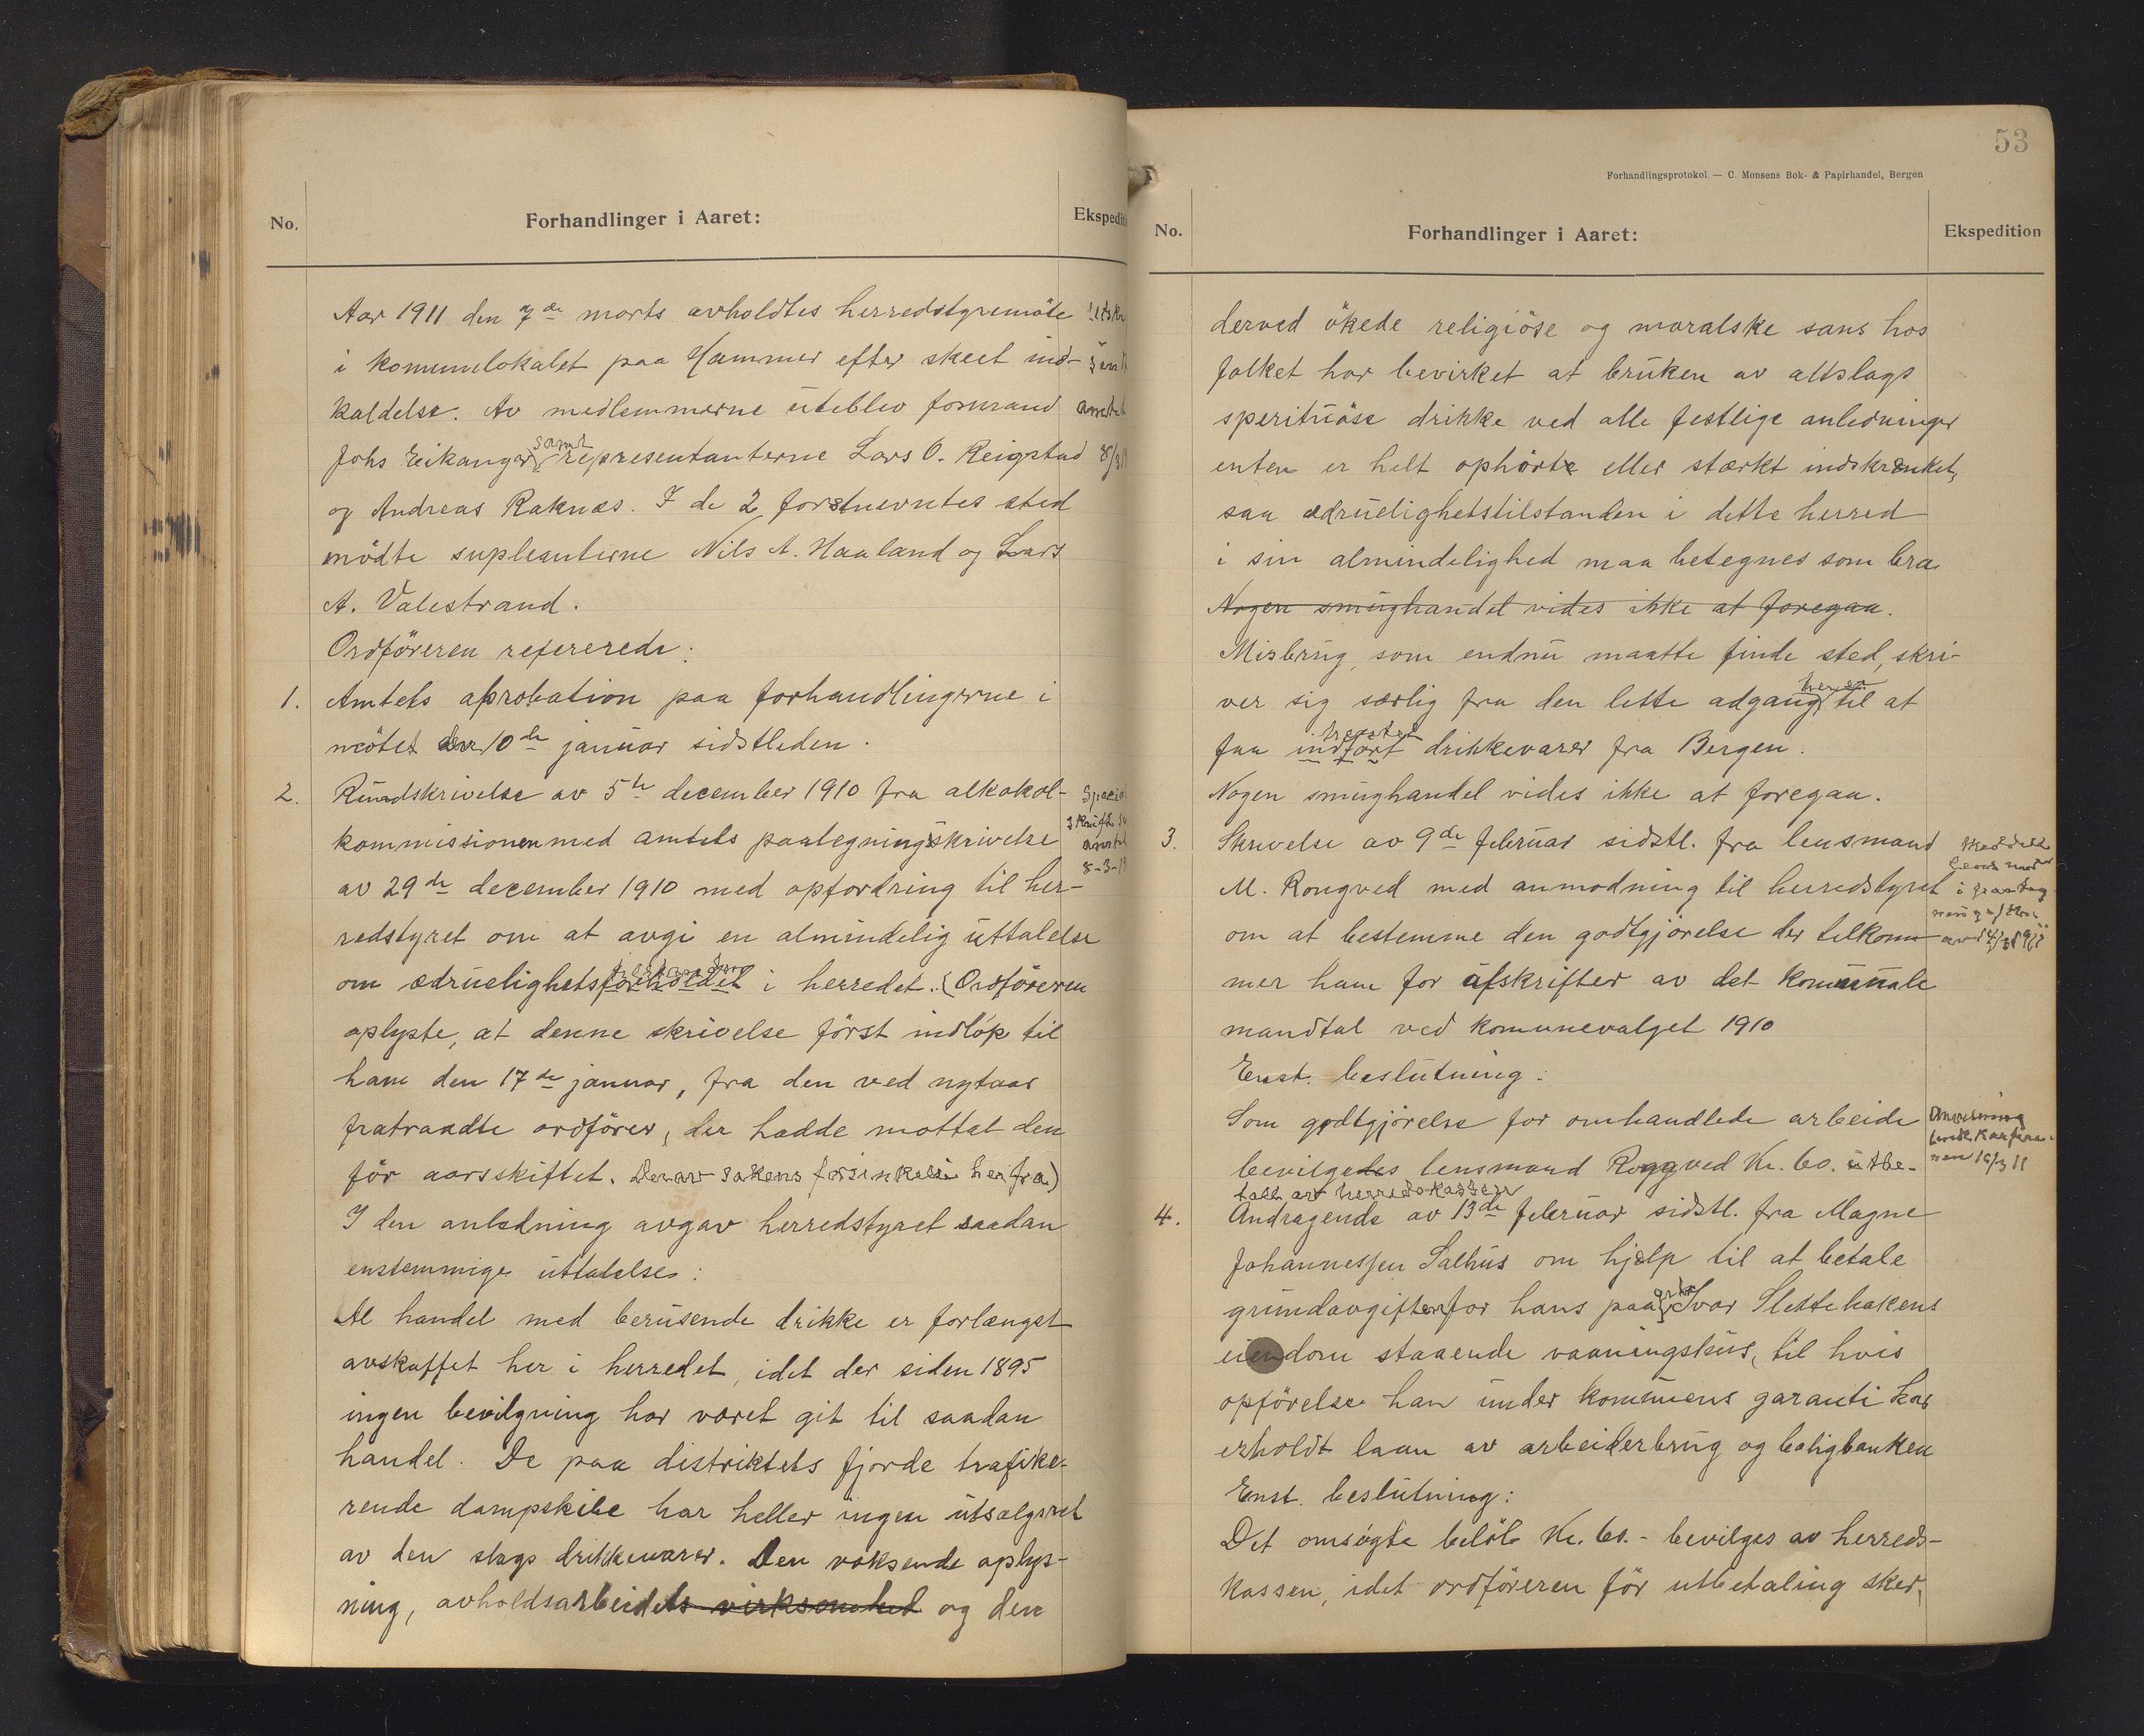 No.
Forhandlinger i Aaret:
Aar 1911 den 7de marts avholdtes herredstyremöte
i komunelokalet paa Hammer efter skeet ind-
kaldelse. Av medlemmerne uteblev formand
Johs Eikanger samt representanterne Lars O. Reigstad
og Andreas Raknæs. I de 2 förstnevntes sted
mödte supleanterne Nils A. Haaland og Lars
A. Valestrand.
Ordföreren refererede:
1. Amtets aprobation paa forhandlingerne i
mötet den 10de januar sidstleden.
2. Rundskrivelse av 5te december 1910 fra alkohol-
kommissionen med amtets paategningsskrivelse
av 29de december 1910 med opfordring til her-
redstyret om at avgi en almindelig uttalelse
om ædruelighetsforholdet tilstanden i herredet. (Ordföreren
oplyste, at denne skrivelse först indlöp til
ham den 17de januar, fra den ved nytaar
fratraadte ordförer, der hadde mottat den
för aarsskiftet. Derav sakens forsinkelse herfra)
I den anledning avgav herredstyret saadan
enstemmige uttalelse:
Al handel med berusende drikke er forlængst
avskaffet her i herredet, idet der siden 1895
ingen bevilgning har været git til saadan
handel. De paa distriktets fjorde trafike-
rende dampskibe har heller ingen utsalgsret
av den slags drikkevarer. Den voksende oplys-
ning, avholdsarbeidets virksomhed og den
8-3-11
53
Forhandlingsprotokol — C. Monsens Bok- & Papirhandel, Bergen
No.
Forhandlinger i Aaret:
Ekspedition
derved ökede religiöse og moralske sans hos
folket har bevirket at bruken av altslags
sperituöse drikke ved alle festlige anledninger
enten er helt ophörte eller stærkt indskrænket,
saa ædruelighetstilstanden i dette herred
i sin almindelighed maa betegnes som bra.
Nogen smughandel vides ikke at foregaa.
Misbrug, som endnu maatte finde sted, skri-
ver sig særlig fra den lette adgang her er til at
faa indfört drikkevarer fra Bergen.
Nogen smughandel vides ikke at foregaa.
3. Skrivelse av 9de februar sidstl. fra lensmand
M. Rongved med anmodning til herredstyret
om at bestemme den godtgjörelse der tilkom-
mer ham for afskrifter av det komunale
mandtal ved komunevalget 1910
Enst. beslutning:
Som godtgjörelse for omhandlede arbeide
bevilgedes lensmand Rongved Kr. 60. utbe-
talt av herredskassen
Anvisning
sendt kasserer-
4. Andragende av 13de februar sidstl. fra Magne
Johannessen Salhus om hjælp til at betale
grundavgiften for hans paa Ivar Slettebakens
eiendom staaende vaaningshus, til hvis
opförelse han under kommunens garanti har
erholdt laan av arbeiderbrug og boligbanken
Enst. beslutning:
Det omsögte belöb Kr. 60.- bevilges av herreds-
kassen, idet ordföreren för utbetaling sker,